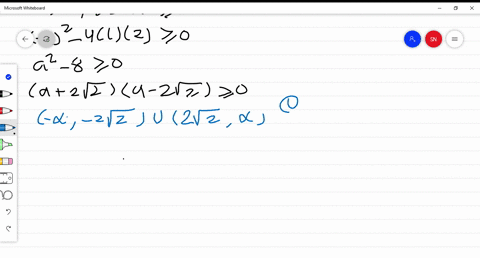 Microsoft Whiteboard
)² - 4(1)(2) ≥ 0
a² - 8 ≥ 0
(a + 2√2)(a - 2√2) ≥ 0
(-α, -2√2) ∪ (2√2, α) ①
SN